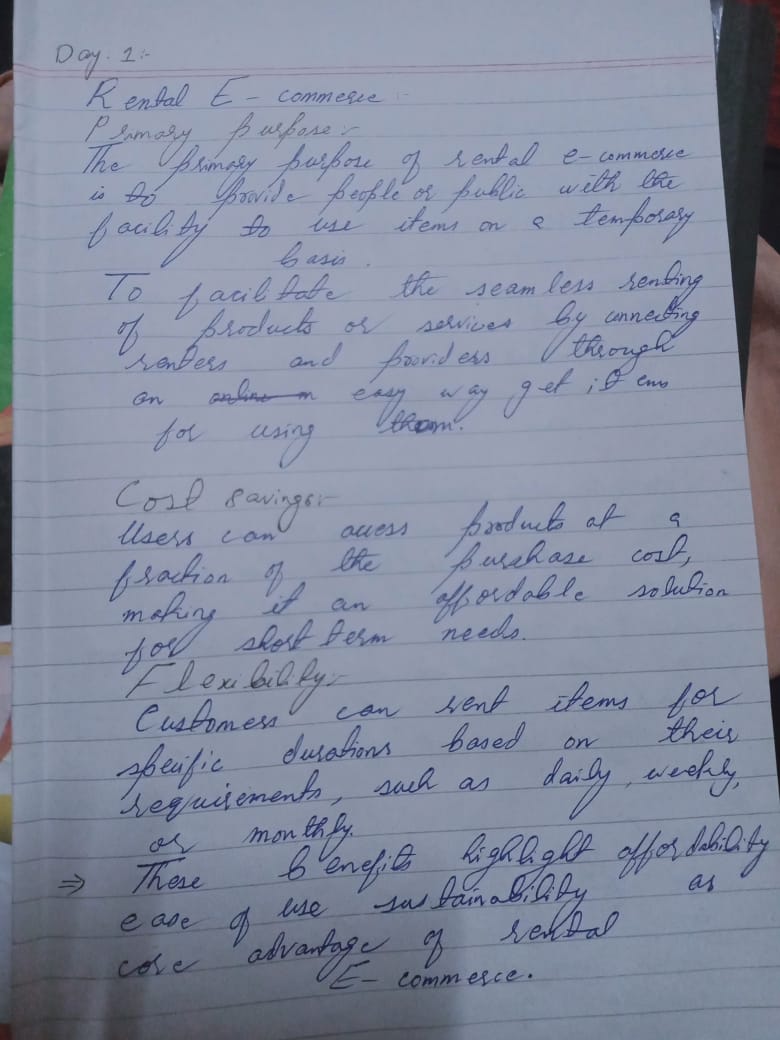 Day. 1:-
Rental E - commerce :-
Primary purpose:-
The primary purpose of rental e-commerce
is to provide people or public with the
facility to use items on a temporary
basis.
To facilitate the seamless renting
of products or services by connecting
renters and providers through
an easy way get items
for using them.
Cost savings:-
Users can access products at a
fraction of the purchase cost,
making it an affordable solution
for short term needs.
Flexibility:-
Customers can rent items for
specific durations based on their
requirements, such as daily, weekly,
or monthly.
⇒ These benefits highlight affordability
ease of use sustainability as
core advantage of rental
E - commerce.